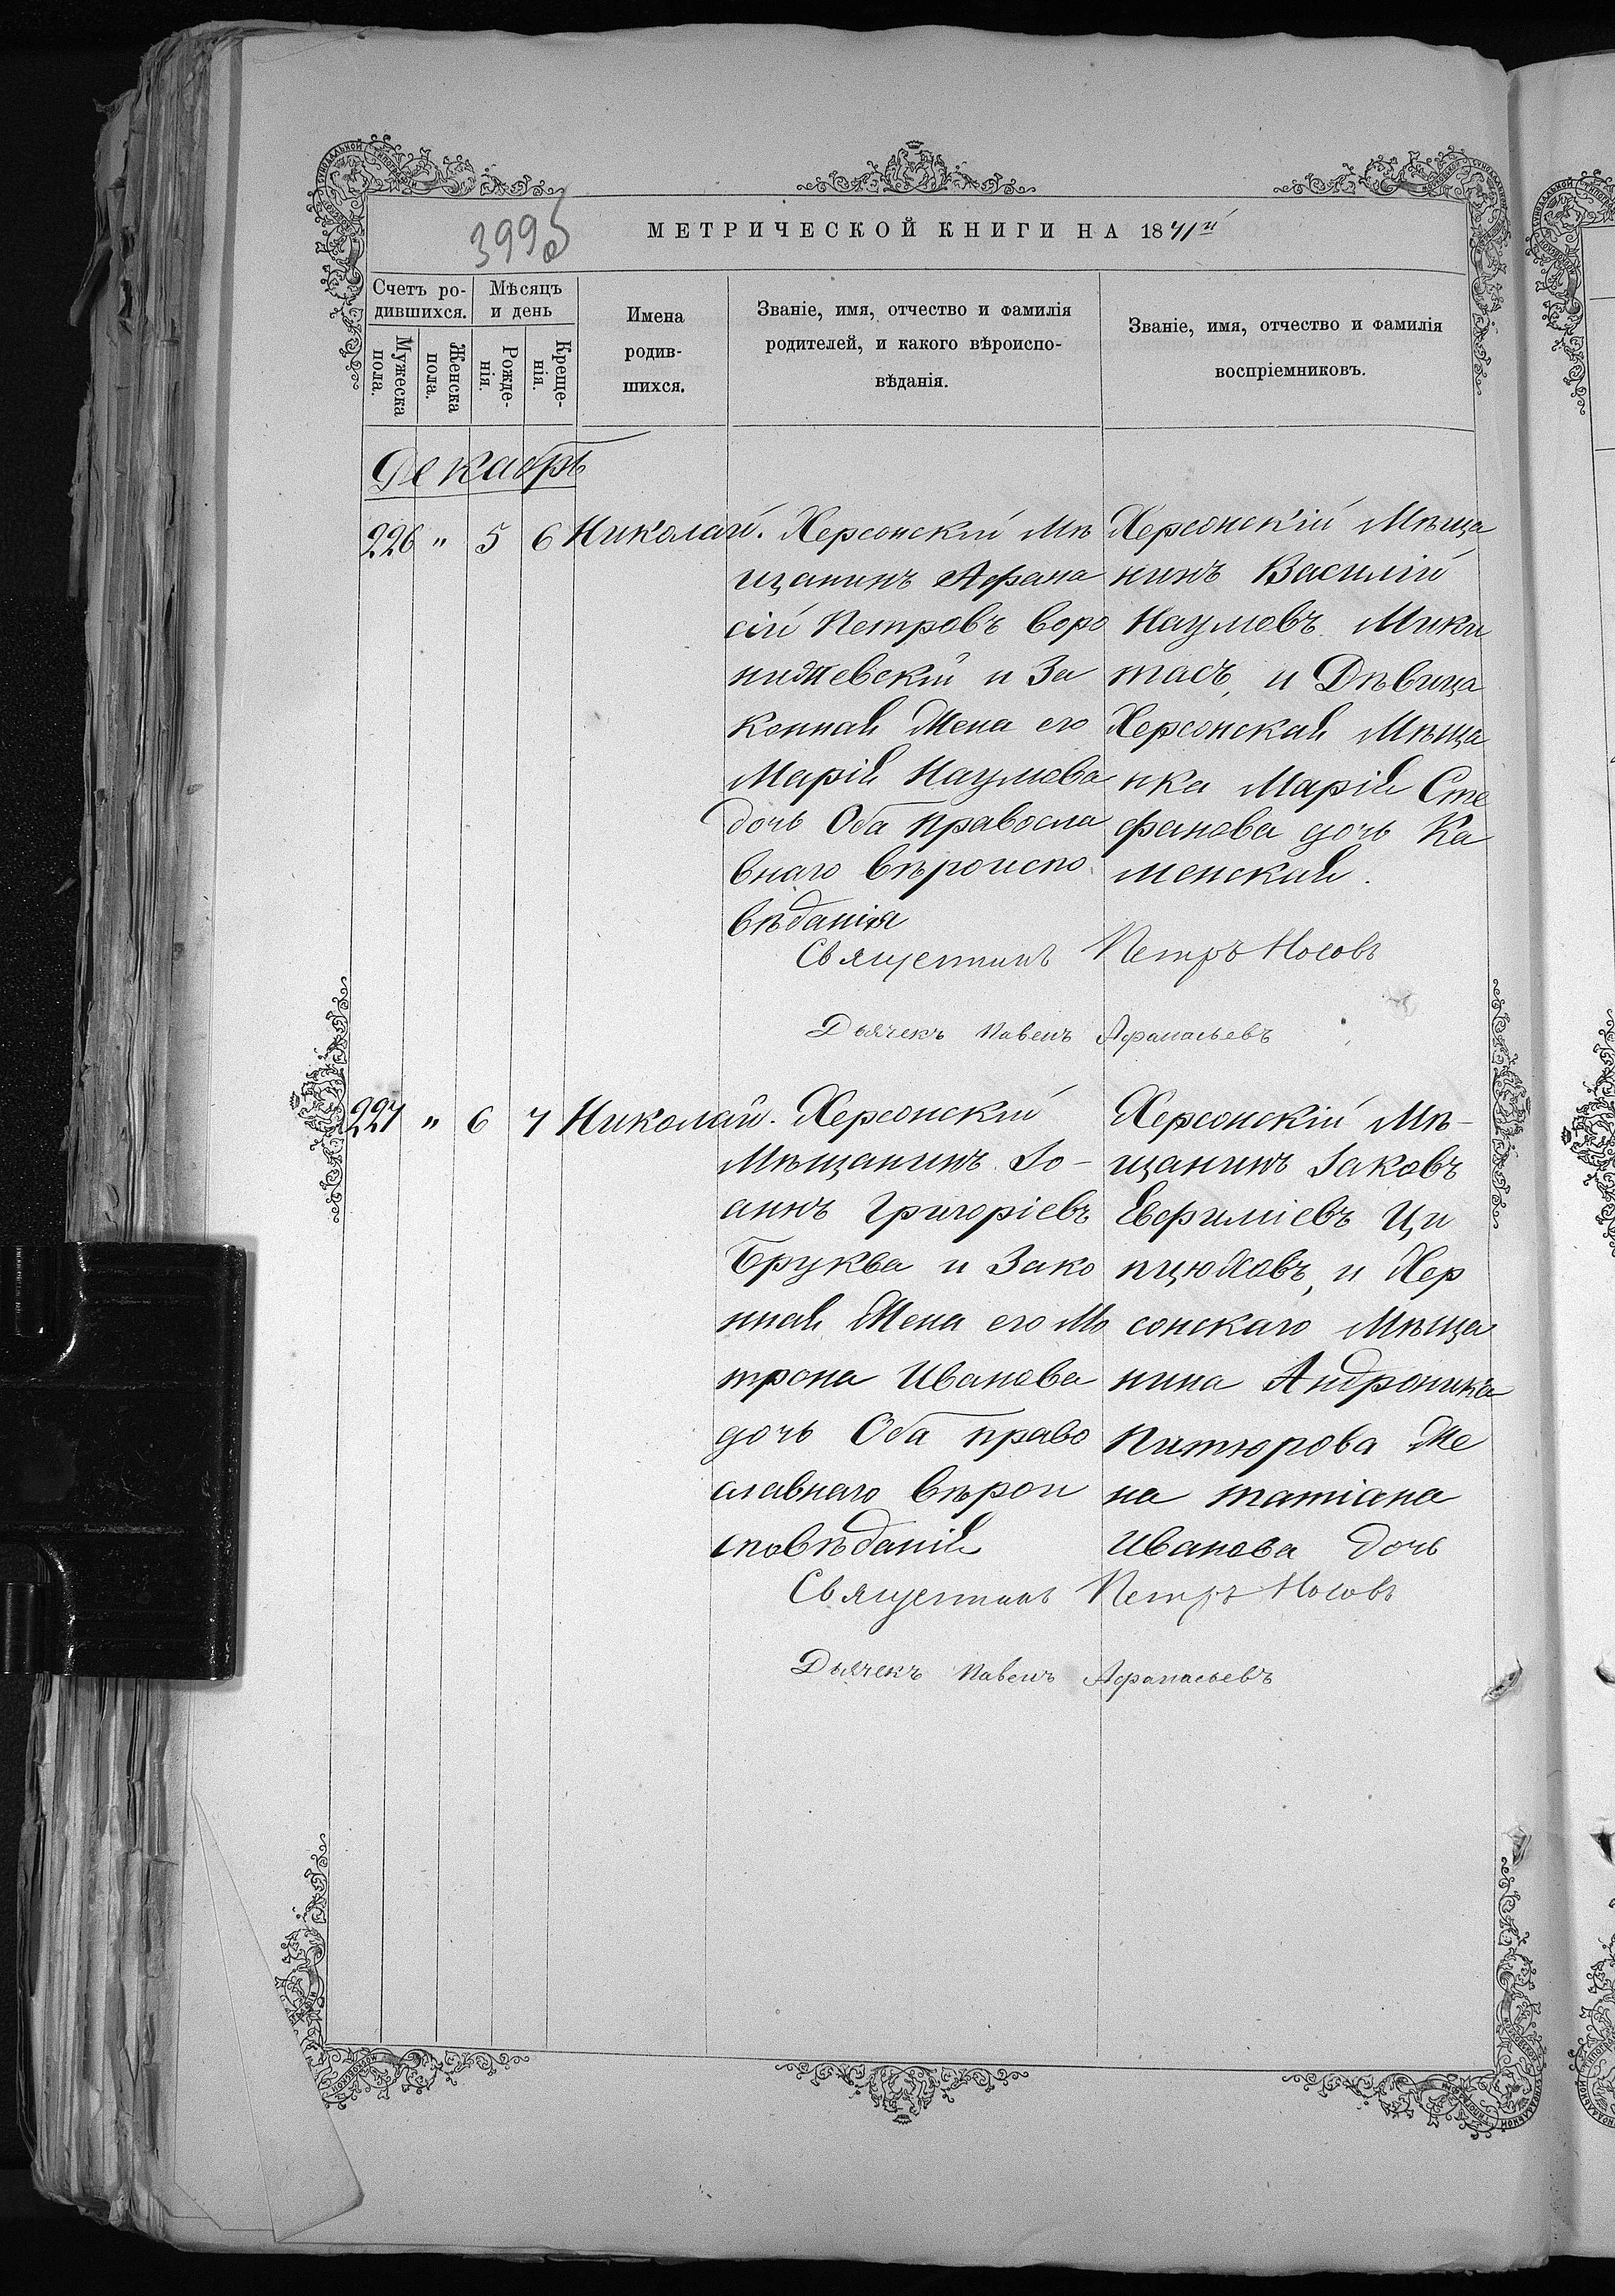 399об
МЕТРИЧЕСКОЙ КНИГИ НА 1871й
Счетъ ро-
дившихся.
Мѣсяцъ
и день
Мужеска
пола.
Женска
пола.
Рожде-
нія.
Креще-
нія.
Имена
родив-
шихся.
Званіе, имя, отчество и фамилія
родителей, и какого вѣроиспо-
вѣданія.
Званіе, имя, отчество и фамилія
воспріемниковъ.
Декабрь
226 " 5 6 Николай.
Херсонскій Мѣ
щанинъ Афана
сій Петровъ Воро
нижевскій и За
конная Жена его
Марія Наумова
дочь Оба правосла
внаго вѣроиспо
вѣданія
Херсонскій Мѣща
нинъ Василій
Наумовъ Мики
тасъ, и Дѣвица
Херсонская Мѣща
нка Марія Сте
фанова дочь Ка
менская.
Священникъ Петръ Носовъ
Дьячекъ Павелъ Афанасьевъ
227 " 6 7 Николай.
Херсонскій
Мѣщанинъ Іо-
аннъ Григоріевъ
Бруква и Зако
нная Жена его Ма
трона Иванова
дочь Оба право
славнаго вѣрои
сповѣданія
Херсонскій Мѣ-
щанинъ Іаковъ
Евфиміевъ Ци
пцюховъ, и Хер
сонскаго Мѣща
нина Андроника
Питюрова Же
на татіана
Иванова дочь
Священникъ Петръ Носовъ
Дьячекъ Павелъ Афанасьевъ